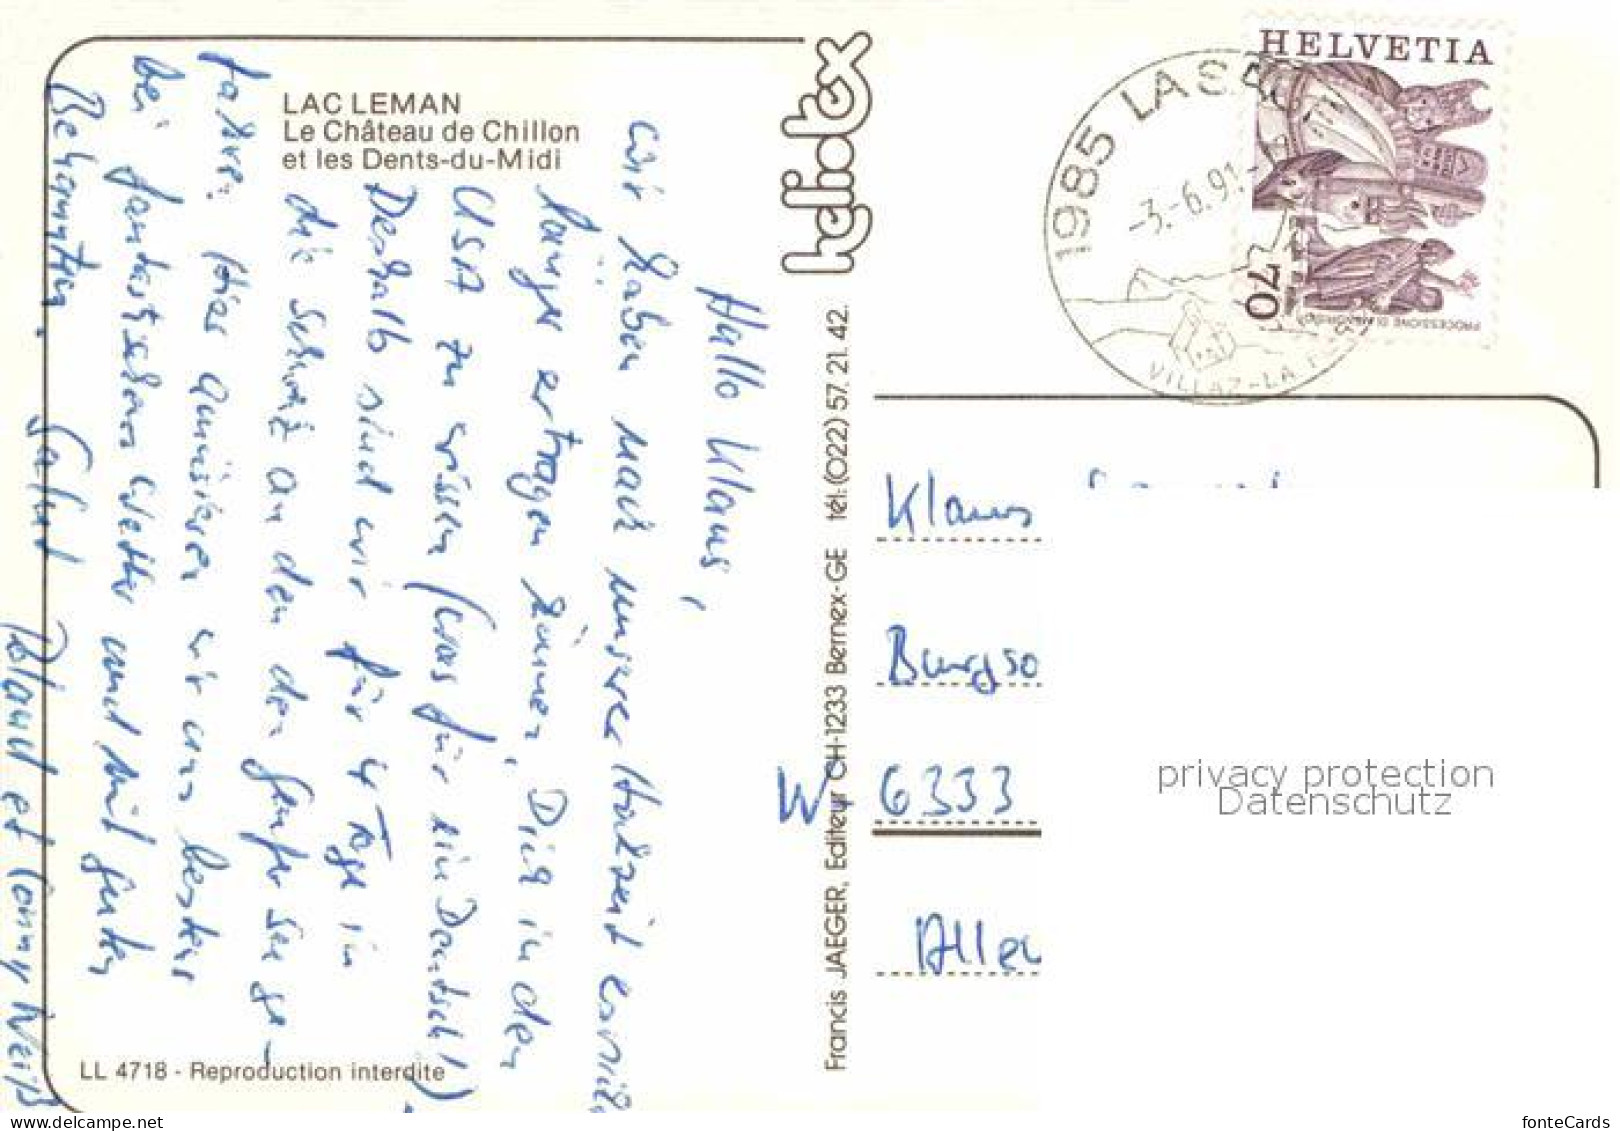 LAC LEMAN
Le Château de Chillon
et les Dents-du-Midi
Hallo Klaus,
wir haben nach unserer Hochzeit
länger ertragen können, Dich in den
USA zu wissen (was für ein Deutsch!)
Deshalb sind wir für 4 Tage in
die Schweiz an den Genfer See ge-
fahren. Hier amüsieren wir uns bestens
bei fantastischem Wetter und mit guten
Bekannten. Salut
et Conny Weiß
LL 4718 - Reproduction interdite
heliotex
Francis JAEGER, Editeur CH-1233 Bernex-GE tél: (022) 57. 21. 42.
HELVETIA
70
1985 LA SA
-3.-6.91.-
VILLAZ-LA
Klaus
Burgso
W 6333
Aller
privacy protection
Datenschutz
www.delcampe.net
fonteCards